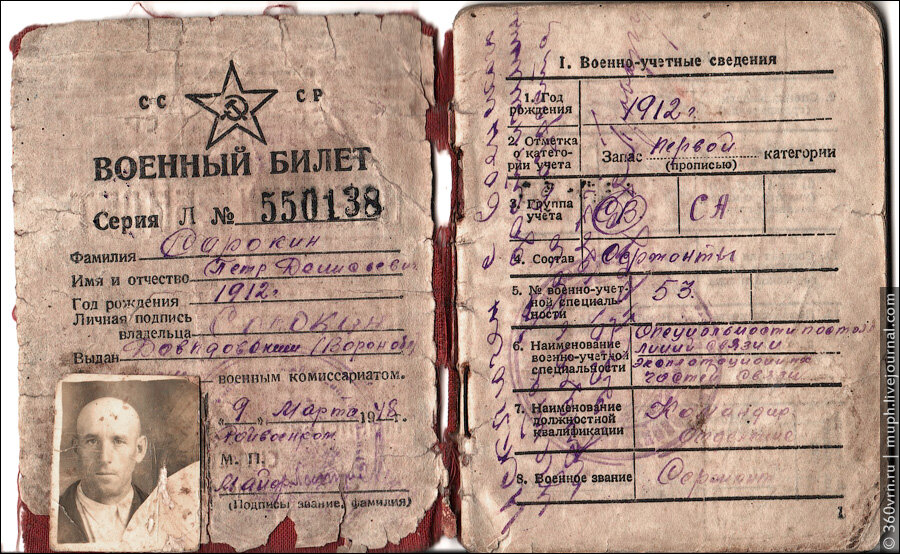 СС СР
ВОЕННЫЙ БИЛЕТ
Серия Л № 550138
Фамилия Сорокин
Имя и отчество Петр
Год рождения 1912г.
Личная подпись
владельца Сорокин
Выдан Давыдовским
военным комиссариатом.
„9„ Марта 1948г.
Райвоенком
М. П.
Майор
(Подписи звание, фамилия)
I. Военно-учетные сведения
1. Год
рождения
1912г.
2. Отметка
о катего-
рии учета
Запас первой категории
(прописью)
3. Группа
учета
СА
4. Состав Сержанты
5. № военно-учет-
ной специаль-
ности
53.
6. Наименование
военно-учетной
специальности
линии связи и
частей связи
7. Наименование
должностной
квалификации
Командир
отделения
8. Военное звание Сержант
1
© 360vrn.ru | muph.livejournal.com